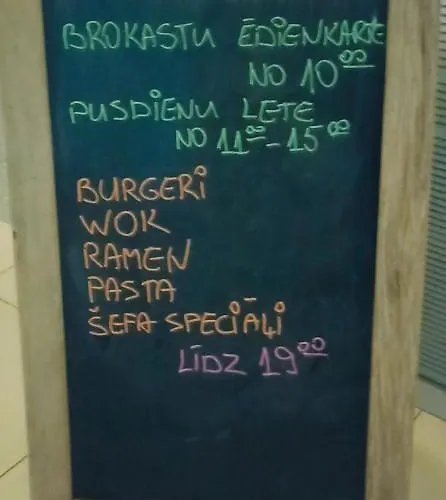 BROKASTU ĒDIENKARTE
NO 10⁰⁰
PUSDIENU LETE
NO 11⁰⁰-15⁰⁰
BURGERI
WOK
RAMEN
PASTA
ŠEFA SPECIĀĻI
LĪDZ 19⁰⁰